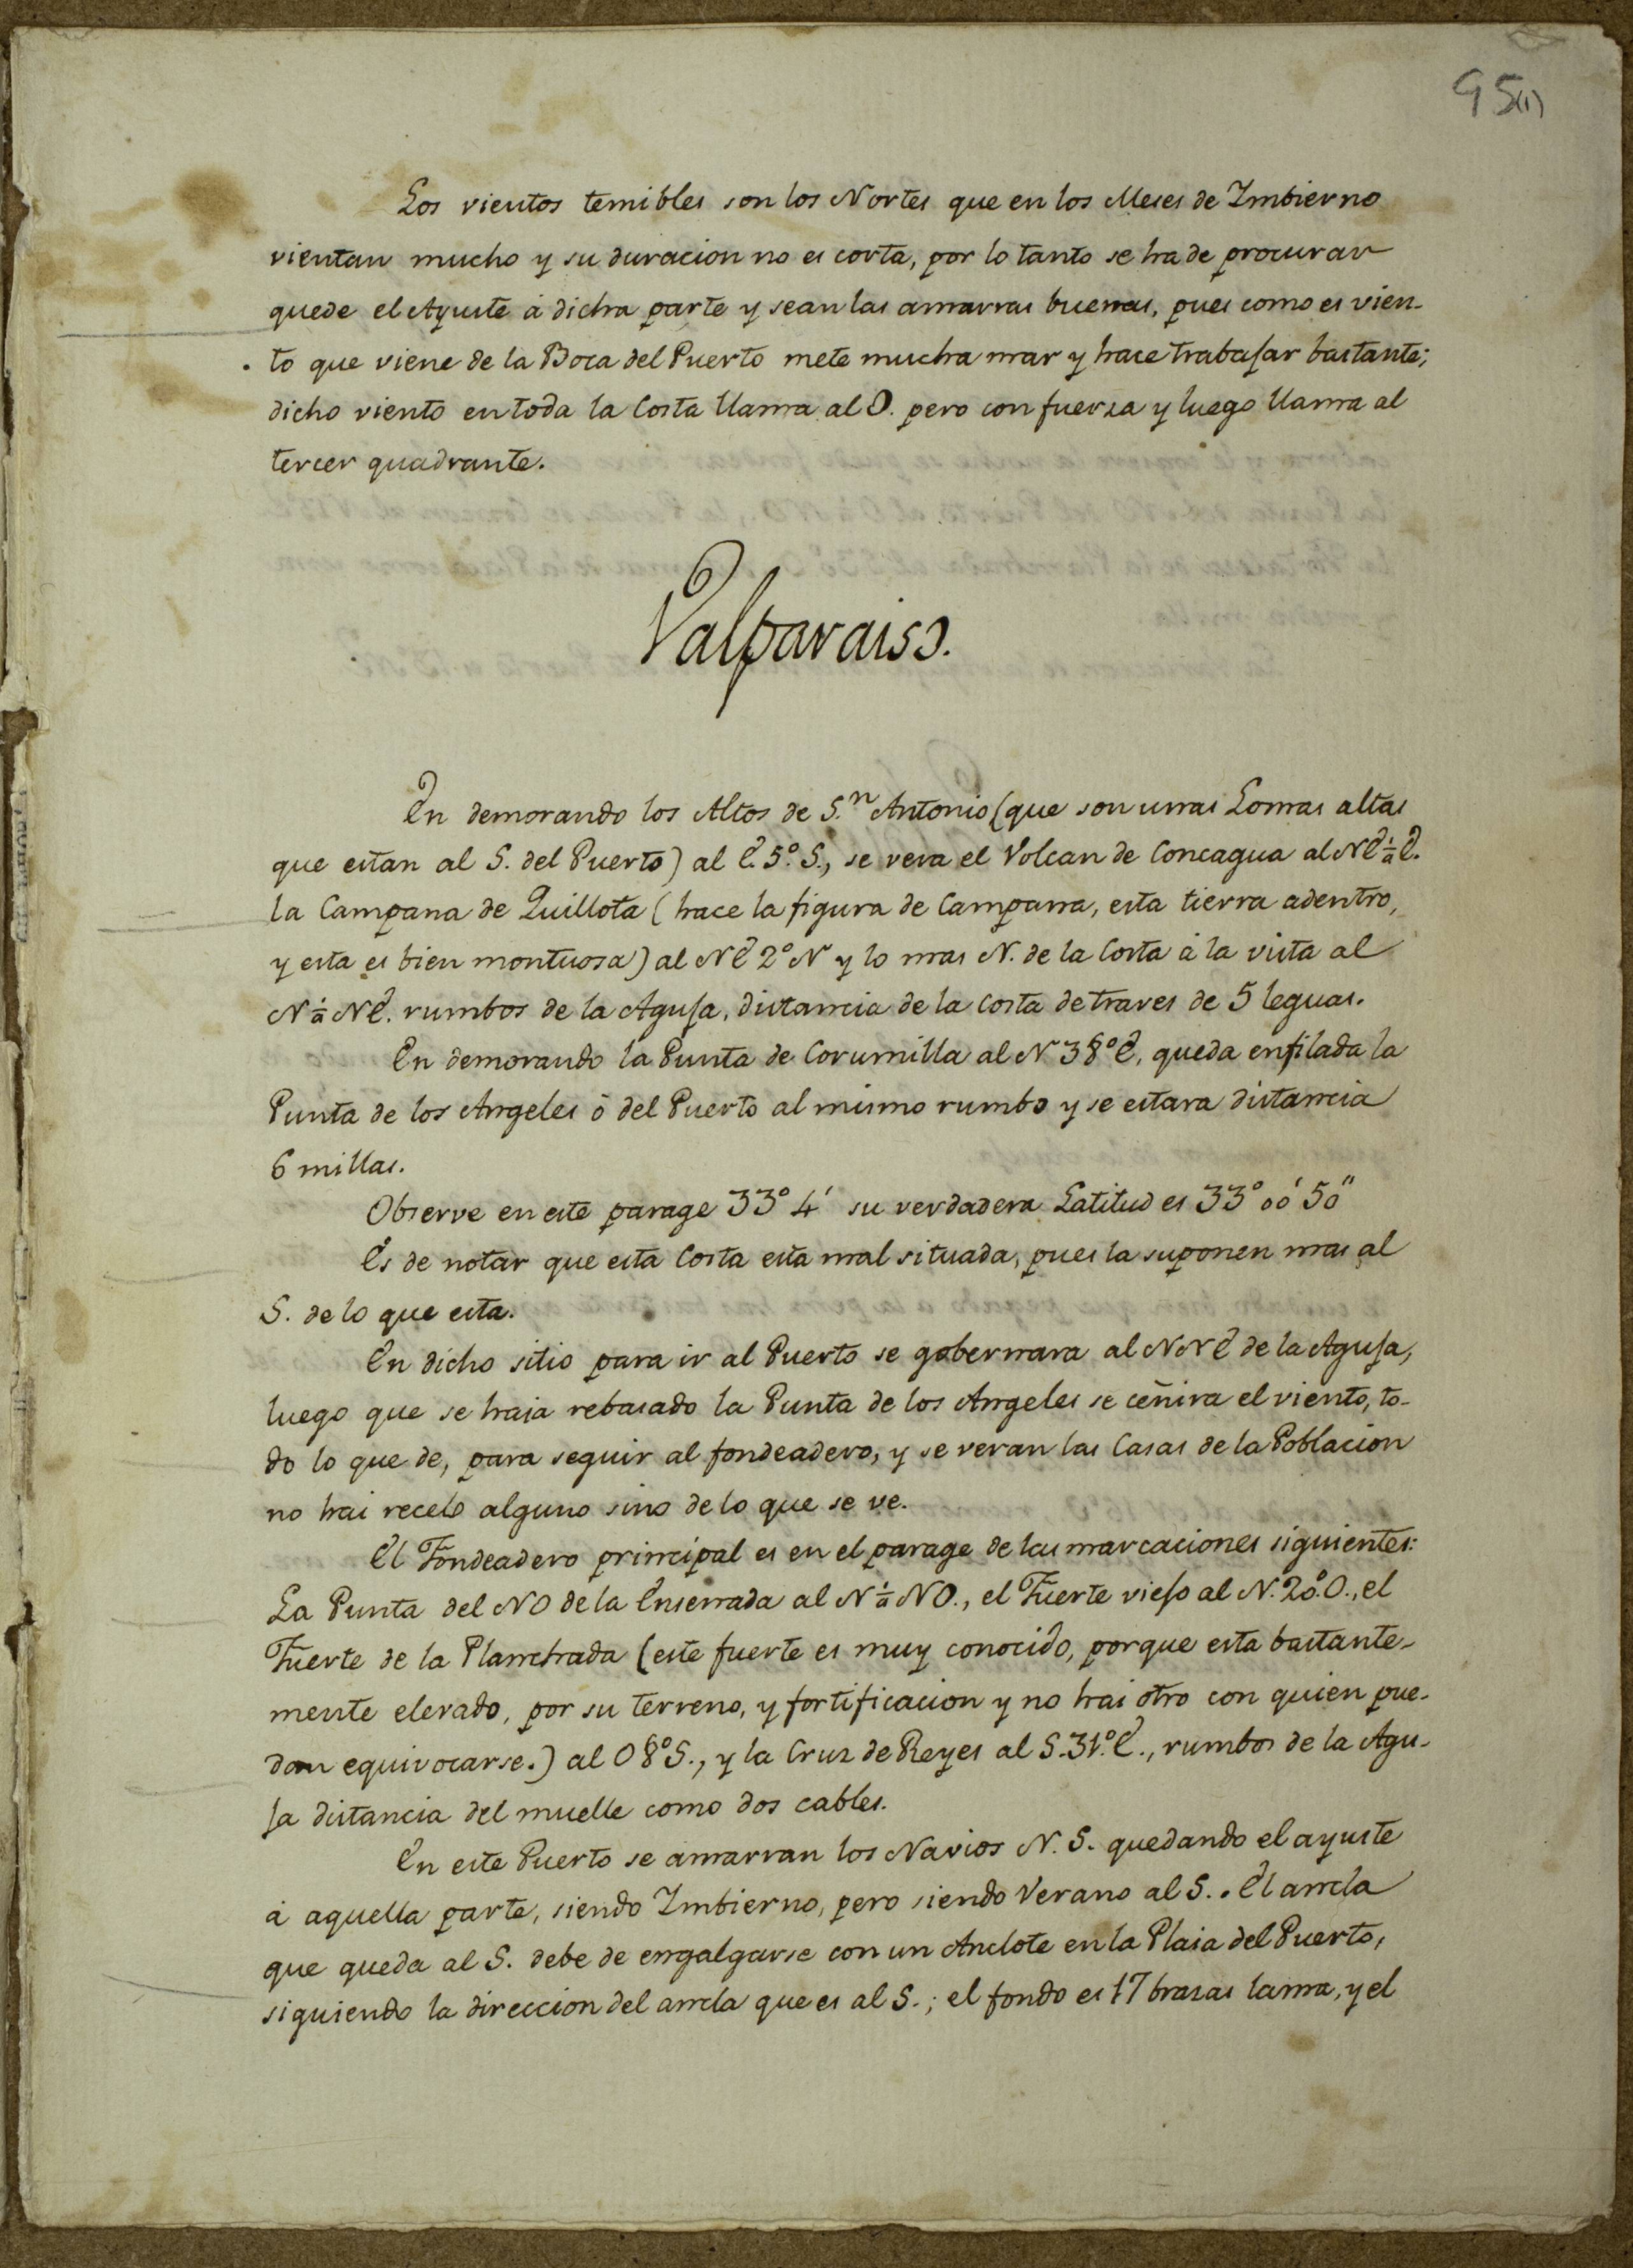 95(1)
Los vientos temibles son los Nortes que en los Meses de Imbierno
vientan mucho y su duracion no es corta, por lo tanto se ha de procurar
quede el Ayuste á dicha parte y sean las amarras buenas, pues como es vien-
to que viene de la Boca del Puerto mete mucha mar y hace trabajar bastante;
dicho viento en toda la Costa llama al O. pero con fuerza y luego llama al
tercer quadrante.
Valparaiso.
En demorando los Altos de S.n Antonio (que son unas Lomas altas
que estan al S. del Puerto) al E. 5º. S., se vera el Volcan de Concagua al NE ¼ E.
la Campana de Quillota (hace la figura de Campana, esta tierra adentro,
y esta es bien montuosa) al NE 2º N y lo mas N. de la Costa á la vista al
N ¼ NE. rumbos de la Aguja, distancia de la Costa de traves de 5 leguas.
En demorando la Punta de Corumilla al N 38º E, queda enfilada la
Punta de los Angeles ó del Puerto al mismo rumbo y se estara distancia
6 millas.
Observe en este parage 33º 4' su verdadera Latitud es 33º 00' 50"
Es de notar que esta Costa esta mal situada, pues la suponen mas al
S. de lo que esta.
En dicho sitio para ir al Puerto se gobernara al NNE de la Aguja,
luego que se haja rebasado la Punta de los Angeles se ceñira el viento, to-
do lo que de, para seguir al fondeadero, y se veran las Casas de la Poblacion
no hai recelo alguno sino de lo que se ve.
El Fondeadero principal es en el parage de las marcaciones siguientes:
La Punta del NO de la Ensenada al N ¼ NO., el Fuerte viejo al N. 20º. O., el
Fuerte de la Planchada (este fuerte es muy conocido, porque esta bastante-
mente elevado, por su terreno, y fortificacion y no hai otro con quien pue-
dan equivocarse.) al O 8º S., y la Cruz de Reyes al S. 31º. E., rumbos de la Agu-
ja distancia del muelle como dos cables.
En este Puerto se amarran los Navios N. S. quedando el ayuste
á aquella parte, siendo Imbierno, pero siendo Verano al S.. El ancla
que queda al S. debe de engalgarse con un Anclote en la Plaia del Puerto,
siguiendo la direccion del ancla que es al S.; el fondo es 17 brazas lama, y el